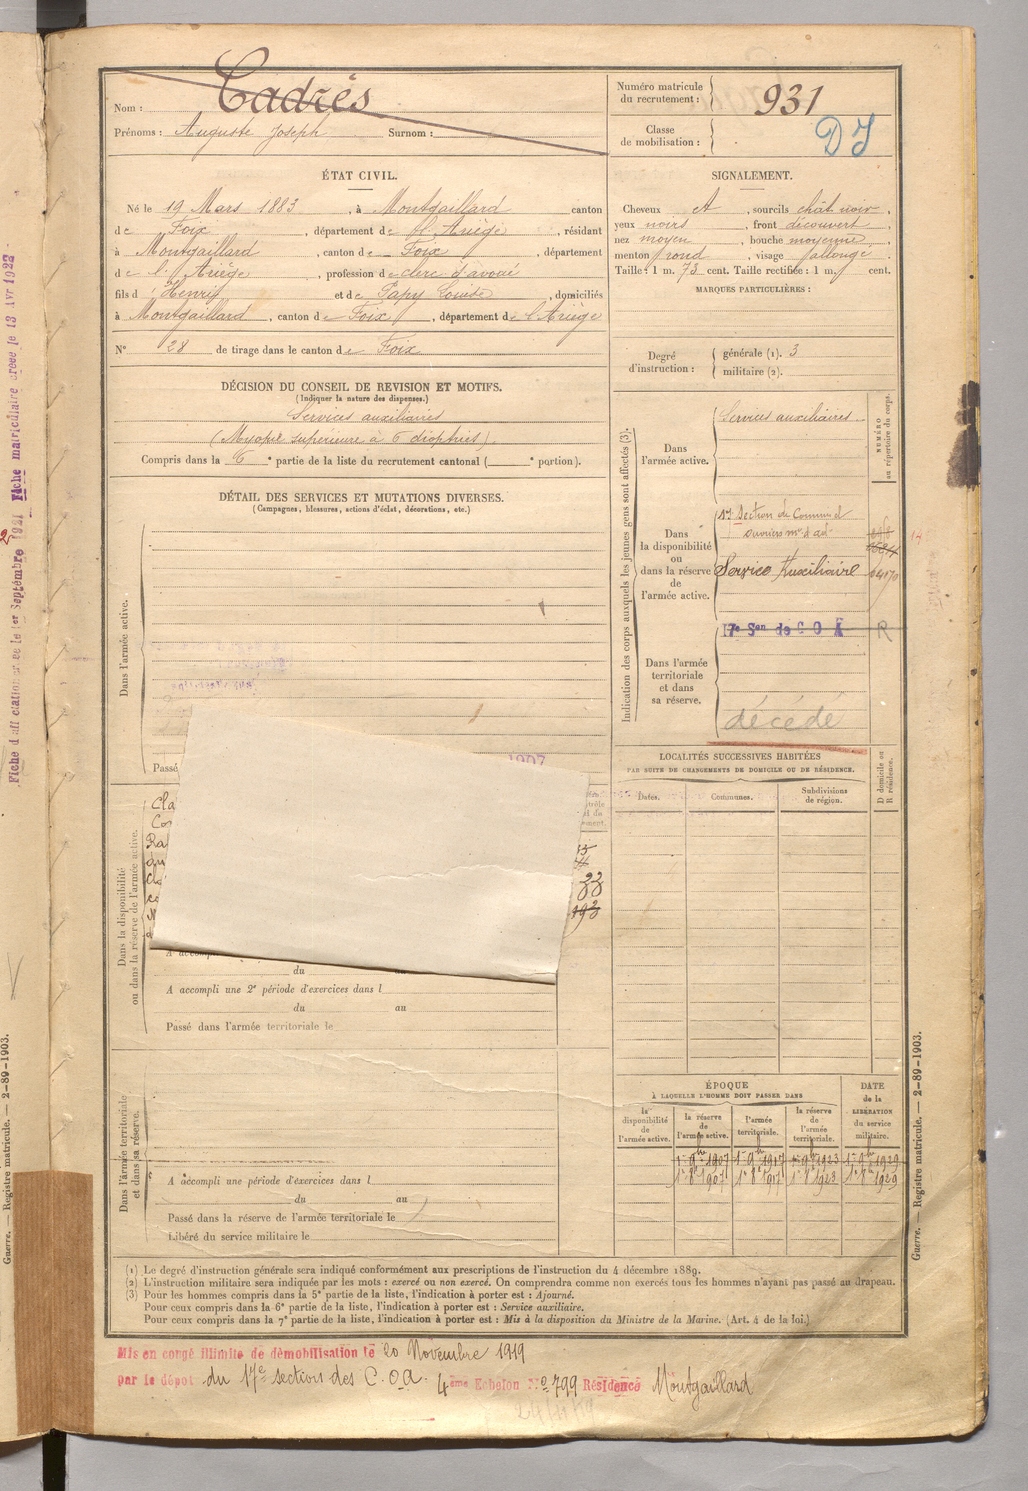 Nom : Cadrés
Prénoms : Auguste Joseph Surnom :
Numéro matricule
du recrutement : 931
Classe
de mobilisation :
ÉTAT CIVIL.
Né le 19 Mars 1883, à Montgaillard canton
de Foix, département de l'Ariège, résidant
à Montgaillard, canton de Foix, département
de l'Ariège, profession de clerc d'avoué
fils d' Henri et de Papy Louise, domiciliés
à Montgaillard, canton de Foix, département de l'Ariège
N° 28 de tirage dans le canton de Foix
SIGNALEMENT.
Cheveux, sourcils chât noir,
yeux noirs, front découvert,
nez moyen, bouche moyenne,
menton rond, visage allongé.
Taille : 1 m. 73 cent. Taille rectifiée : 1 m. cent.
MARQUES PARTICULIÈRES :
Degré
d'instruction :
générale (1). 3
militaire (2).
DÉCISION DU CONSEIL DE REVISION ET MOTIFS.
(Indiquer la nature des dispenses.)
Services auxiliaires
(Myopie supérieure à 6 dioptries).
Compris dans la 6e partie de la liste du recrutement cantonal ( e portion).
DÉTAIL DES SERVICES ET MUTATIONS DIVERSES.
(Campagnes, blessures, actions d'éclat, décorations, etc.)
Dans l'armée active.
Passé
1907
Indication des corps auxquels les jeunes gens sont affectés (3).
NUMÉRO
au répertoire du corps.
Dans
l'armée active.
Services auxiliaires
Dans
la disponibilité
ou
dans la réserve
de
l'armée active.
17e Section de Commis et
ouvriers mre d'ad.
Service Auxiliaire
Dans l'armée
territoriale
et dans
sa réserve.
17e Son de C O A R
décédé
LOCALITÉS SUCCESSIVES HABITÉES
PAR SUITE DE CHANGEMENTS DE DOMICILE OU DE RÉSIDENCE.
D domicile ou
R résidence.
Dates. Communes. Subdivisions
de région.
Dans la disponibilité
ou dans la réserve de l'armée active.
du au
A accompli une 2e période d'exercices dans l
du au
Passé dans l'armée territoriale le
Dans l'armée territoriale
et dans sa réserve.
A accompli une période d'exercices dans l
du au
Passé dans la réserve de l'armée territoriale le
Libéré du service militaire le
ÉPOQUE
À LAQUELLE L'HOMME DOIT PASSER DANS
DATE
de la
LIBÉRATION
du service
militaire.
la
disponibilité
de
l'armée active.
la réserve
de
l'armée active.
l'armée
territoriale.
la réserve
de
l'armée
territoriale.
1er 9bre 1907 1er 9bre 1917 1er 9bre 1923 1er 9bre 1929
1er 8bre 1907 1er 8bre 1917 1er 8bre 1923 1er 8bre 1929
(1) Le degré d'instruction générale sera indiqué conformément aux prescriptions de l'instruction du 4 décembre 1889.
(2) L'instruction militaire sera indiquée par les mots : exercé ou non exercé. On comprendra comme non exercés tous les hommes n'ayant pas passé au drapeau.
(3) Pour les hommes compris dans la 5e partie de la liste, l'indication à porter est : Ajourné.
Pour ceux compris dans la 6e partie de la liste, l'indication à porter est : Service auxiliaire.
Pour ceux compris dans la 7e partie de la liste, l'indication à porter est : Mis à la disposition du Ministre de la Marine. (Art. 4 de la loi.)
Mis en congé illimité de démobilisation le 20 Novembre 1919
par le dépot du 17e section des C.O.A. 4ème Echelon No 799 Résidence Montgaillard
Guerre. — Registre matricule. — 2-89-1903.
Guerre. — Registre matricule. — 2-89-1903.
Septembre 1921 Fiche matriculaire créée le 13 Avr 1922